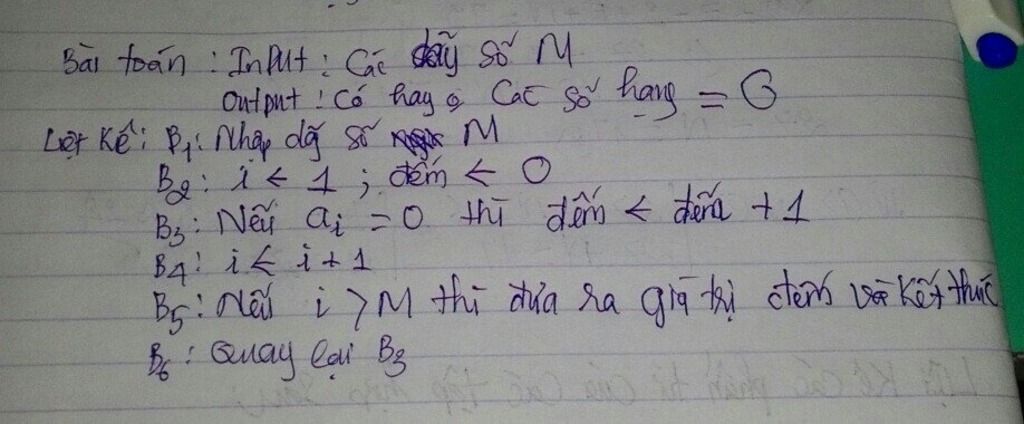 Bài toán : InPut : Các dãy số M
Output : Có hay o Các số hạng = 0
Liệt Kế : B1 : Nhập dãy số M
B2 : i ← 1 ; đếm ← 0
B3 : Nếu ai = 0 thì đếm ← đếm + 1
B4 : i ← i + 1
B5 : Nếu i > M thì đưa ra giá trị đếm và kết thúc
B6 : Quay lại B3